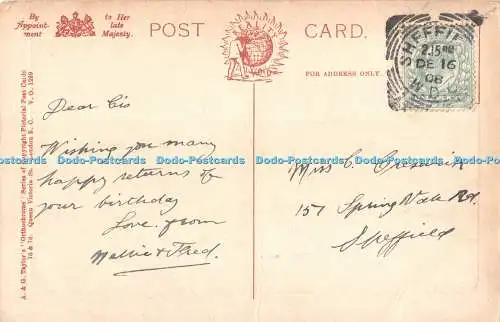 By Appoint-ment
to Her late Majesty.
POST CARD.
FOR ADDRESS ONLY.
SHEFFIELD
2.15 PM
DE 16
08
A. & G. Taylor's "Orthochrome" Series of Copyright Pictorial Post Cards
70 & 78 Queen Victoria St. London E. C. V. O. 1269
Dear Cis
Wishing you many
happy returns of
your birthday
Love from
Nellie & Fred.
Miss C.
157 Spring Vale Rd.
Sheffield
Dodo-Postcards Dodo-Postcards Dodo-Postcards Dodo-Postcards Dodo-Postcards Dodo-Postcards